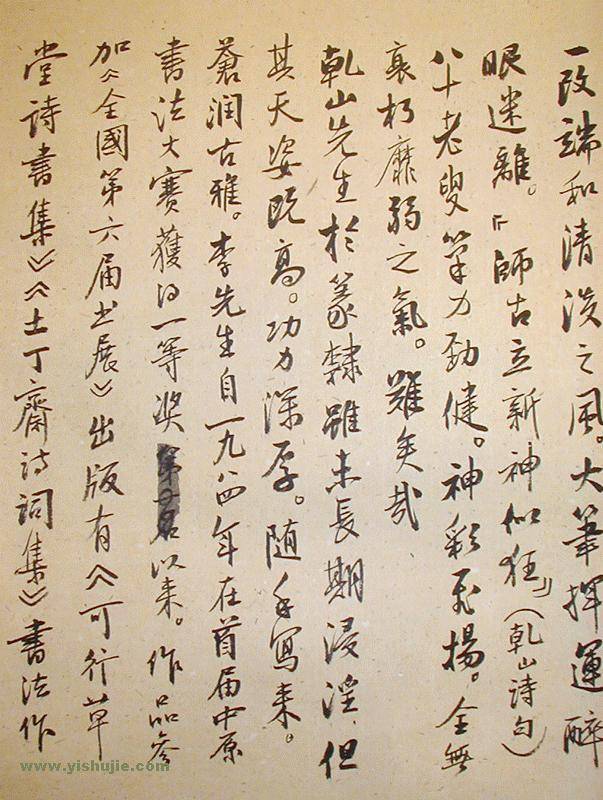 一改端和清淡之风。大笔挥运醉
眼迷離。『師古立新神似狂』（乾山詩句）
八十老叟筆力劲健。神彩飞揚。全無
衰朽靡弱之氣。難矣哉
乾山先生於篆隸雖未長期浸淫，但
其天姿既高。功力深厚。随手寫来。
蒼润古雅。李先生自一九八四年在首届中原
書法大赛獲得一等奖 以来。作品参
加《全國第六届书展》出版有《可行草
堂詩書集》《土丁齋诗词集》書法作
www.yishujie.com